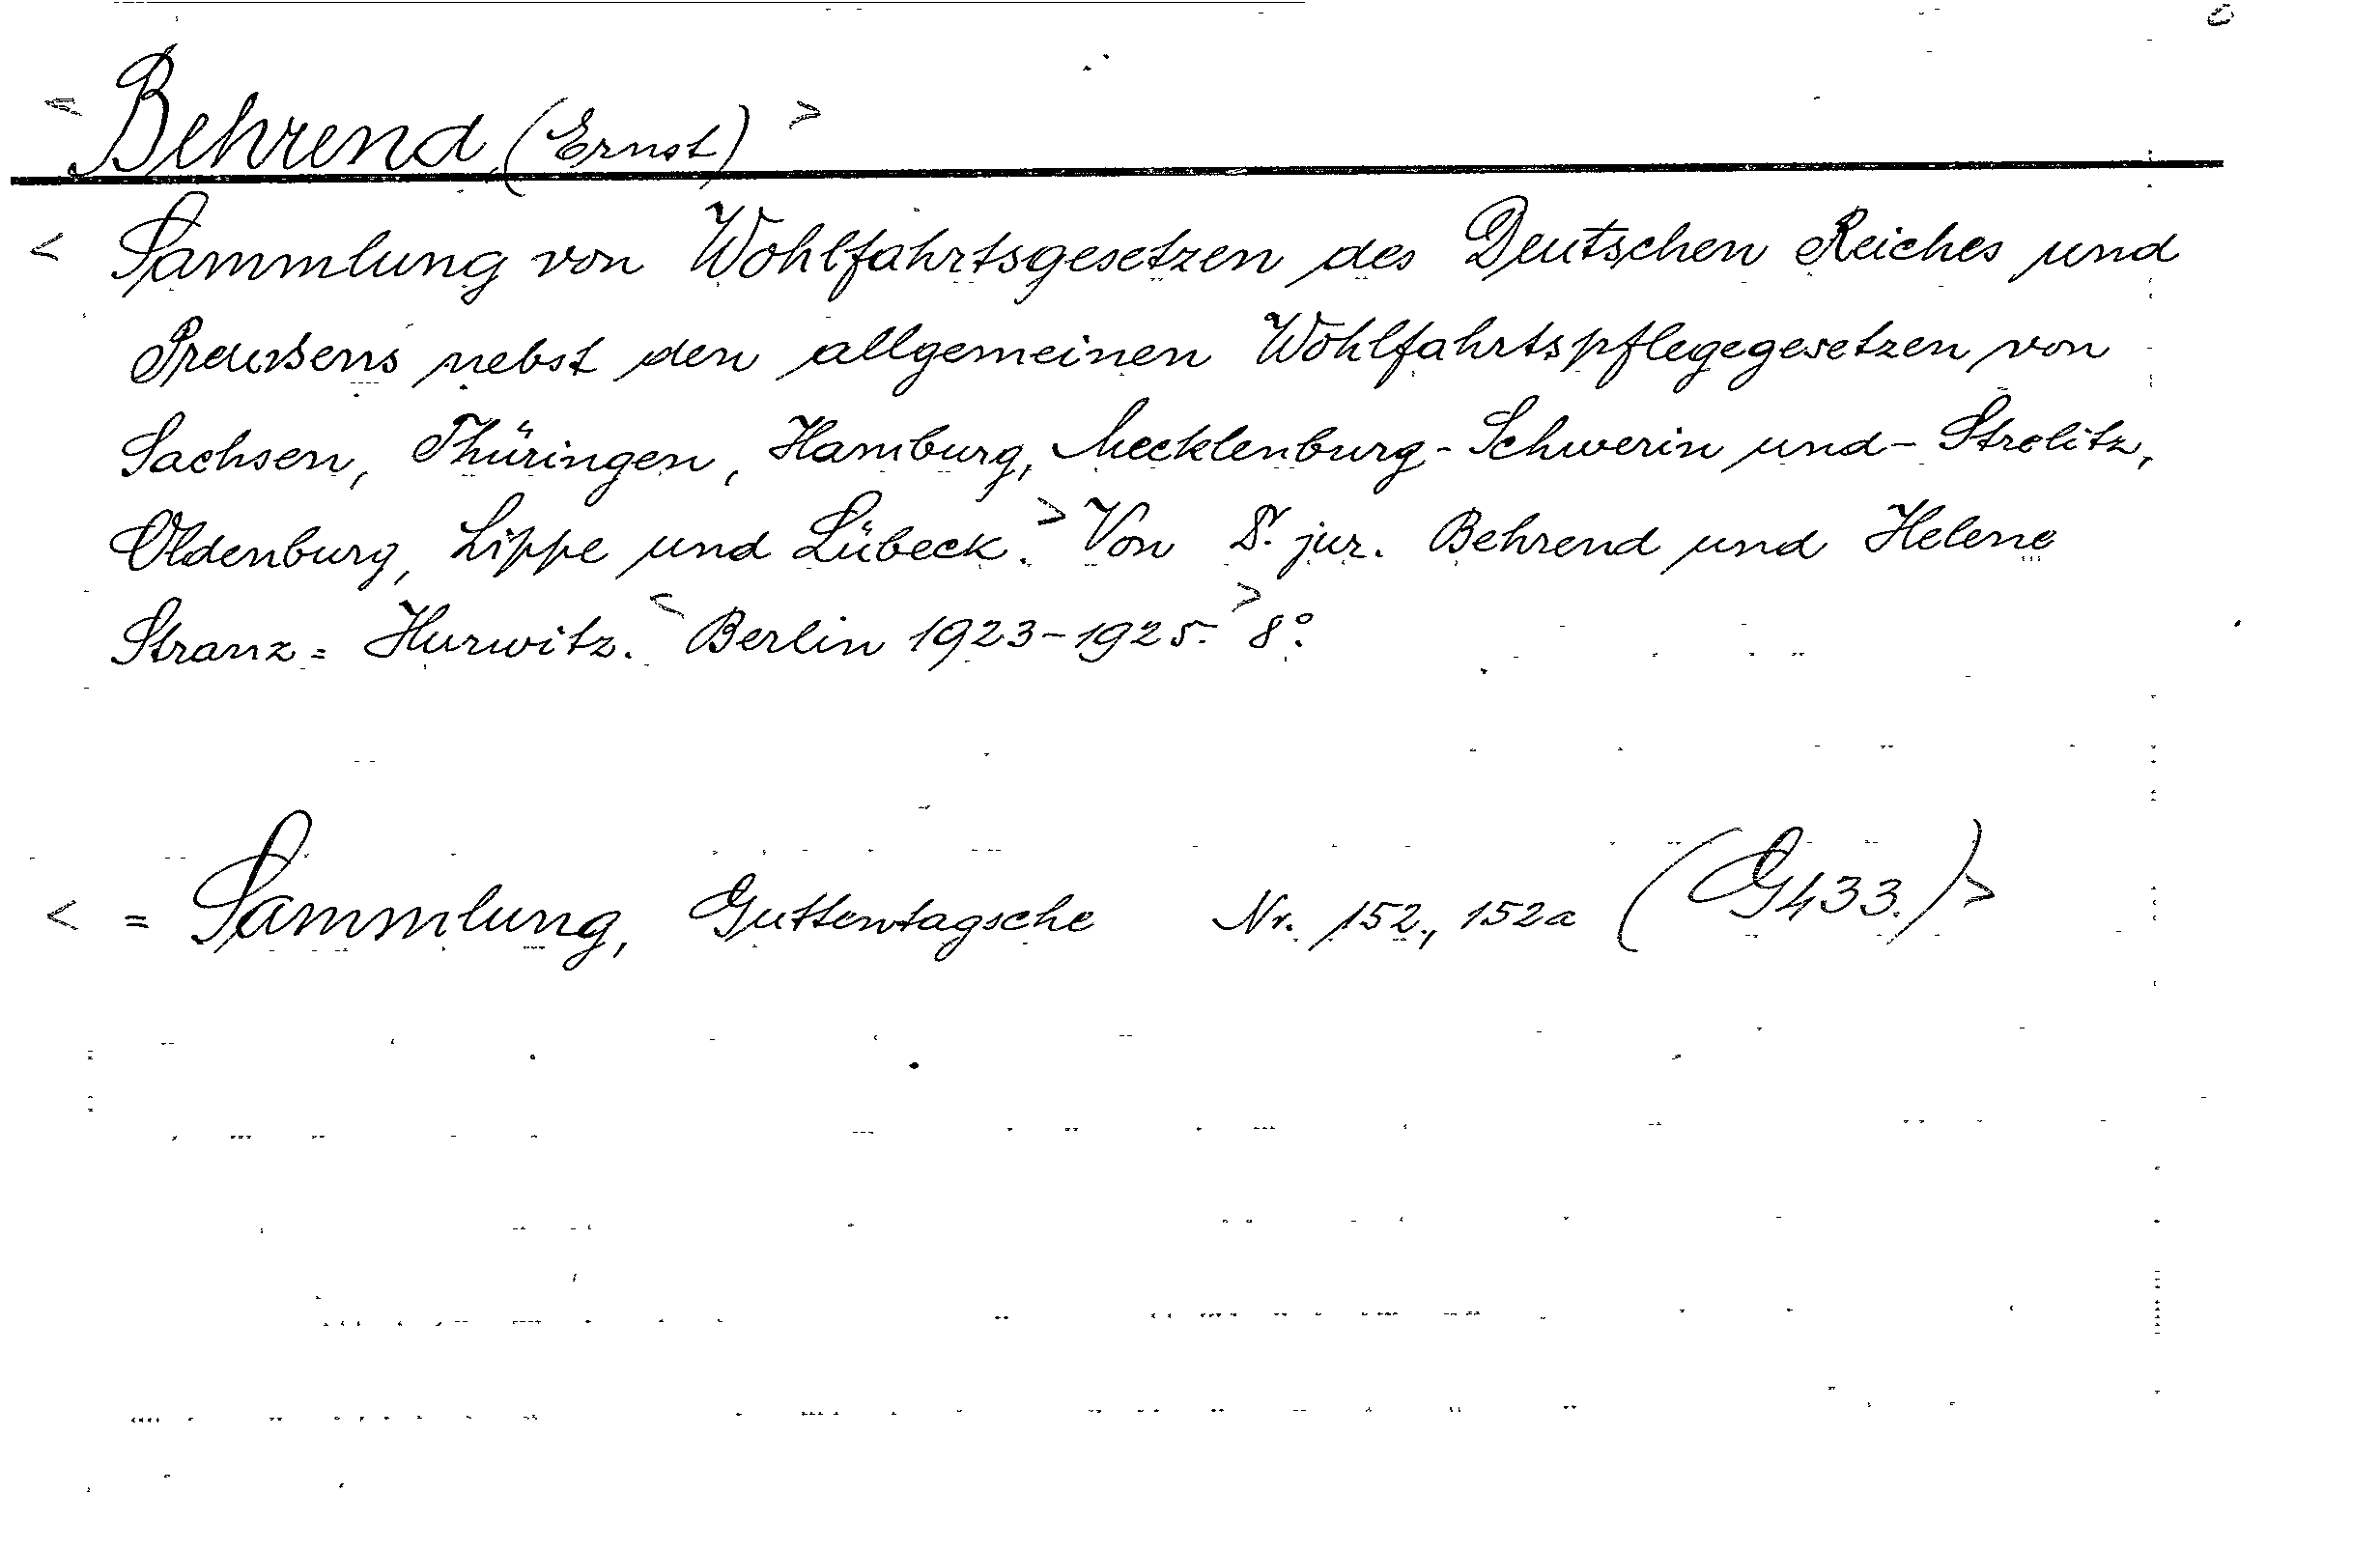 < Behrend, (Ernst) >
< Sammlung von Wohlfahrtsgesetzen des Deutschen Reiches und
Preußens nebst den allgemeinen Wohlfahrtspflegegesetzen von
Sachsen, Thüringen, Hamburg, Mecklenburg-Schwerin und-Strelitz,
Oldenburg, Lippe und Lübeck. > Von Dr. jur. Behrend und Helene
Stranz= Hurwitz. < Berlin 1923-1925. > 8°.
< = Sammlung, Guttentagsche Nr. 152., 152a (G 433.) >